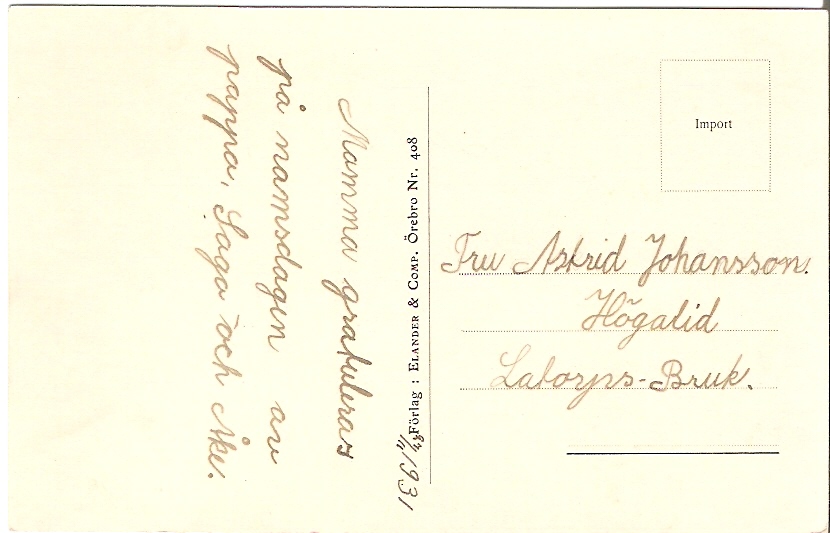 Mamma gratuleras
på namnsdagen av
pappa, Saga och Åke.
Förlag : ELANDER & COMP. Örebro Nr. 408
1931
Import
Fru Astrid Johansson.
Högalid
Latorps-Bruk.